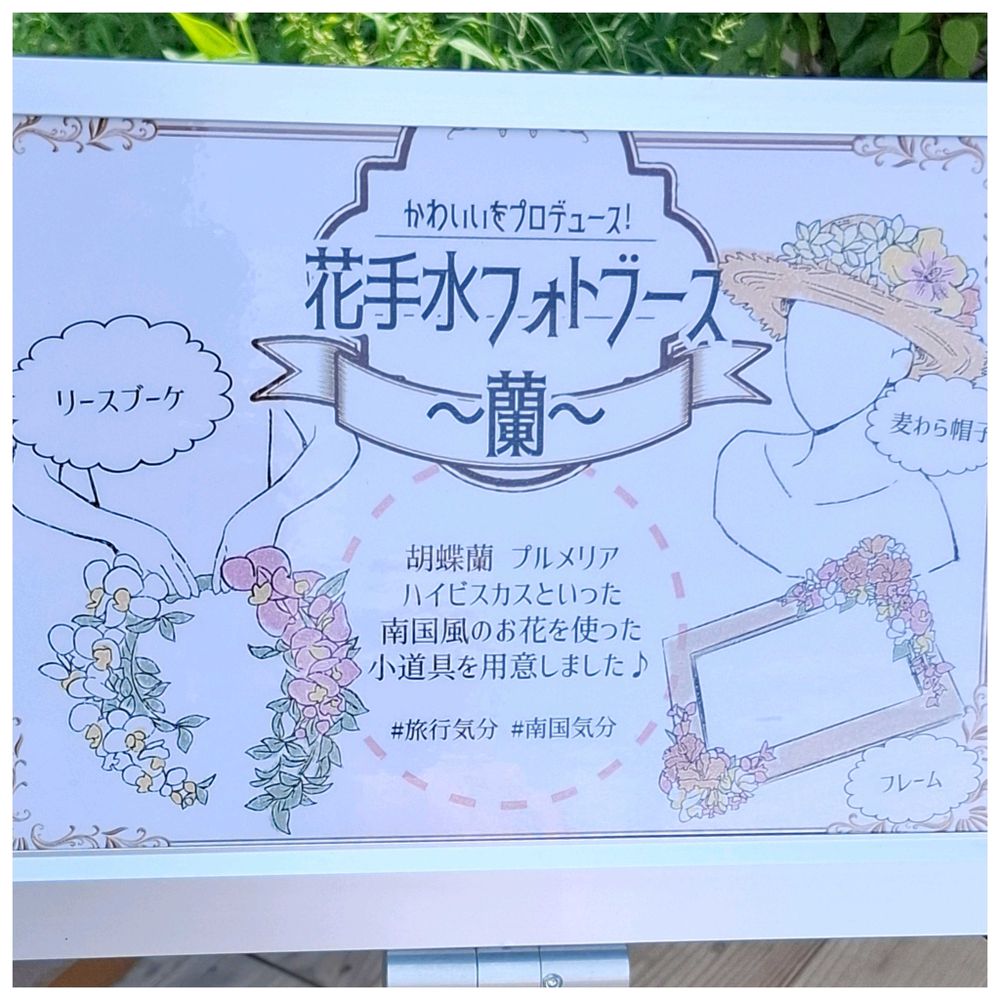 かわいいをプロデュース！
花手水フォトブース
～蘭～
リースブーケ
麦わら帽子
胡蝶蘭 プルメリア
ハイビスカスといった
南国風のお花を使った
小道具を用意しました♪
#旅行気分 #南国気分
フレーム